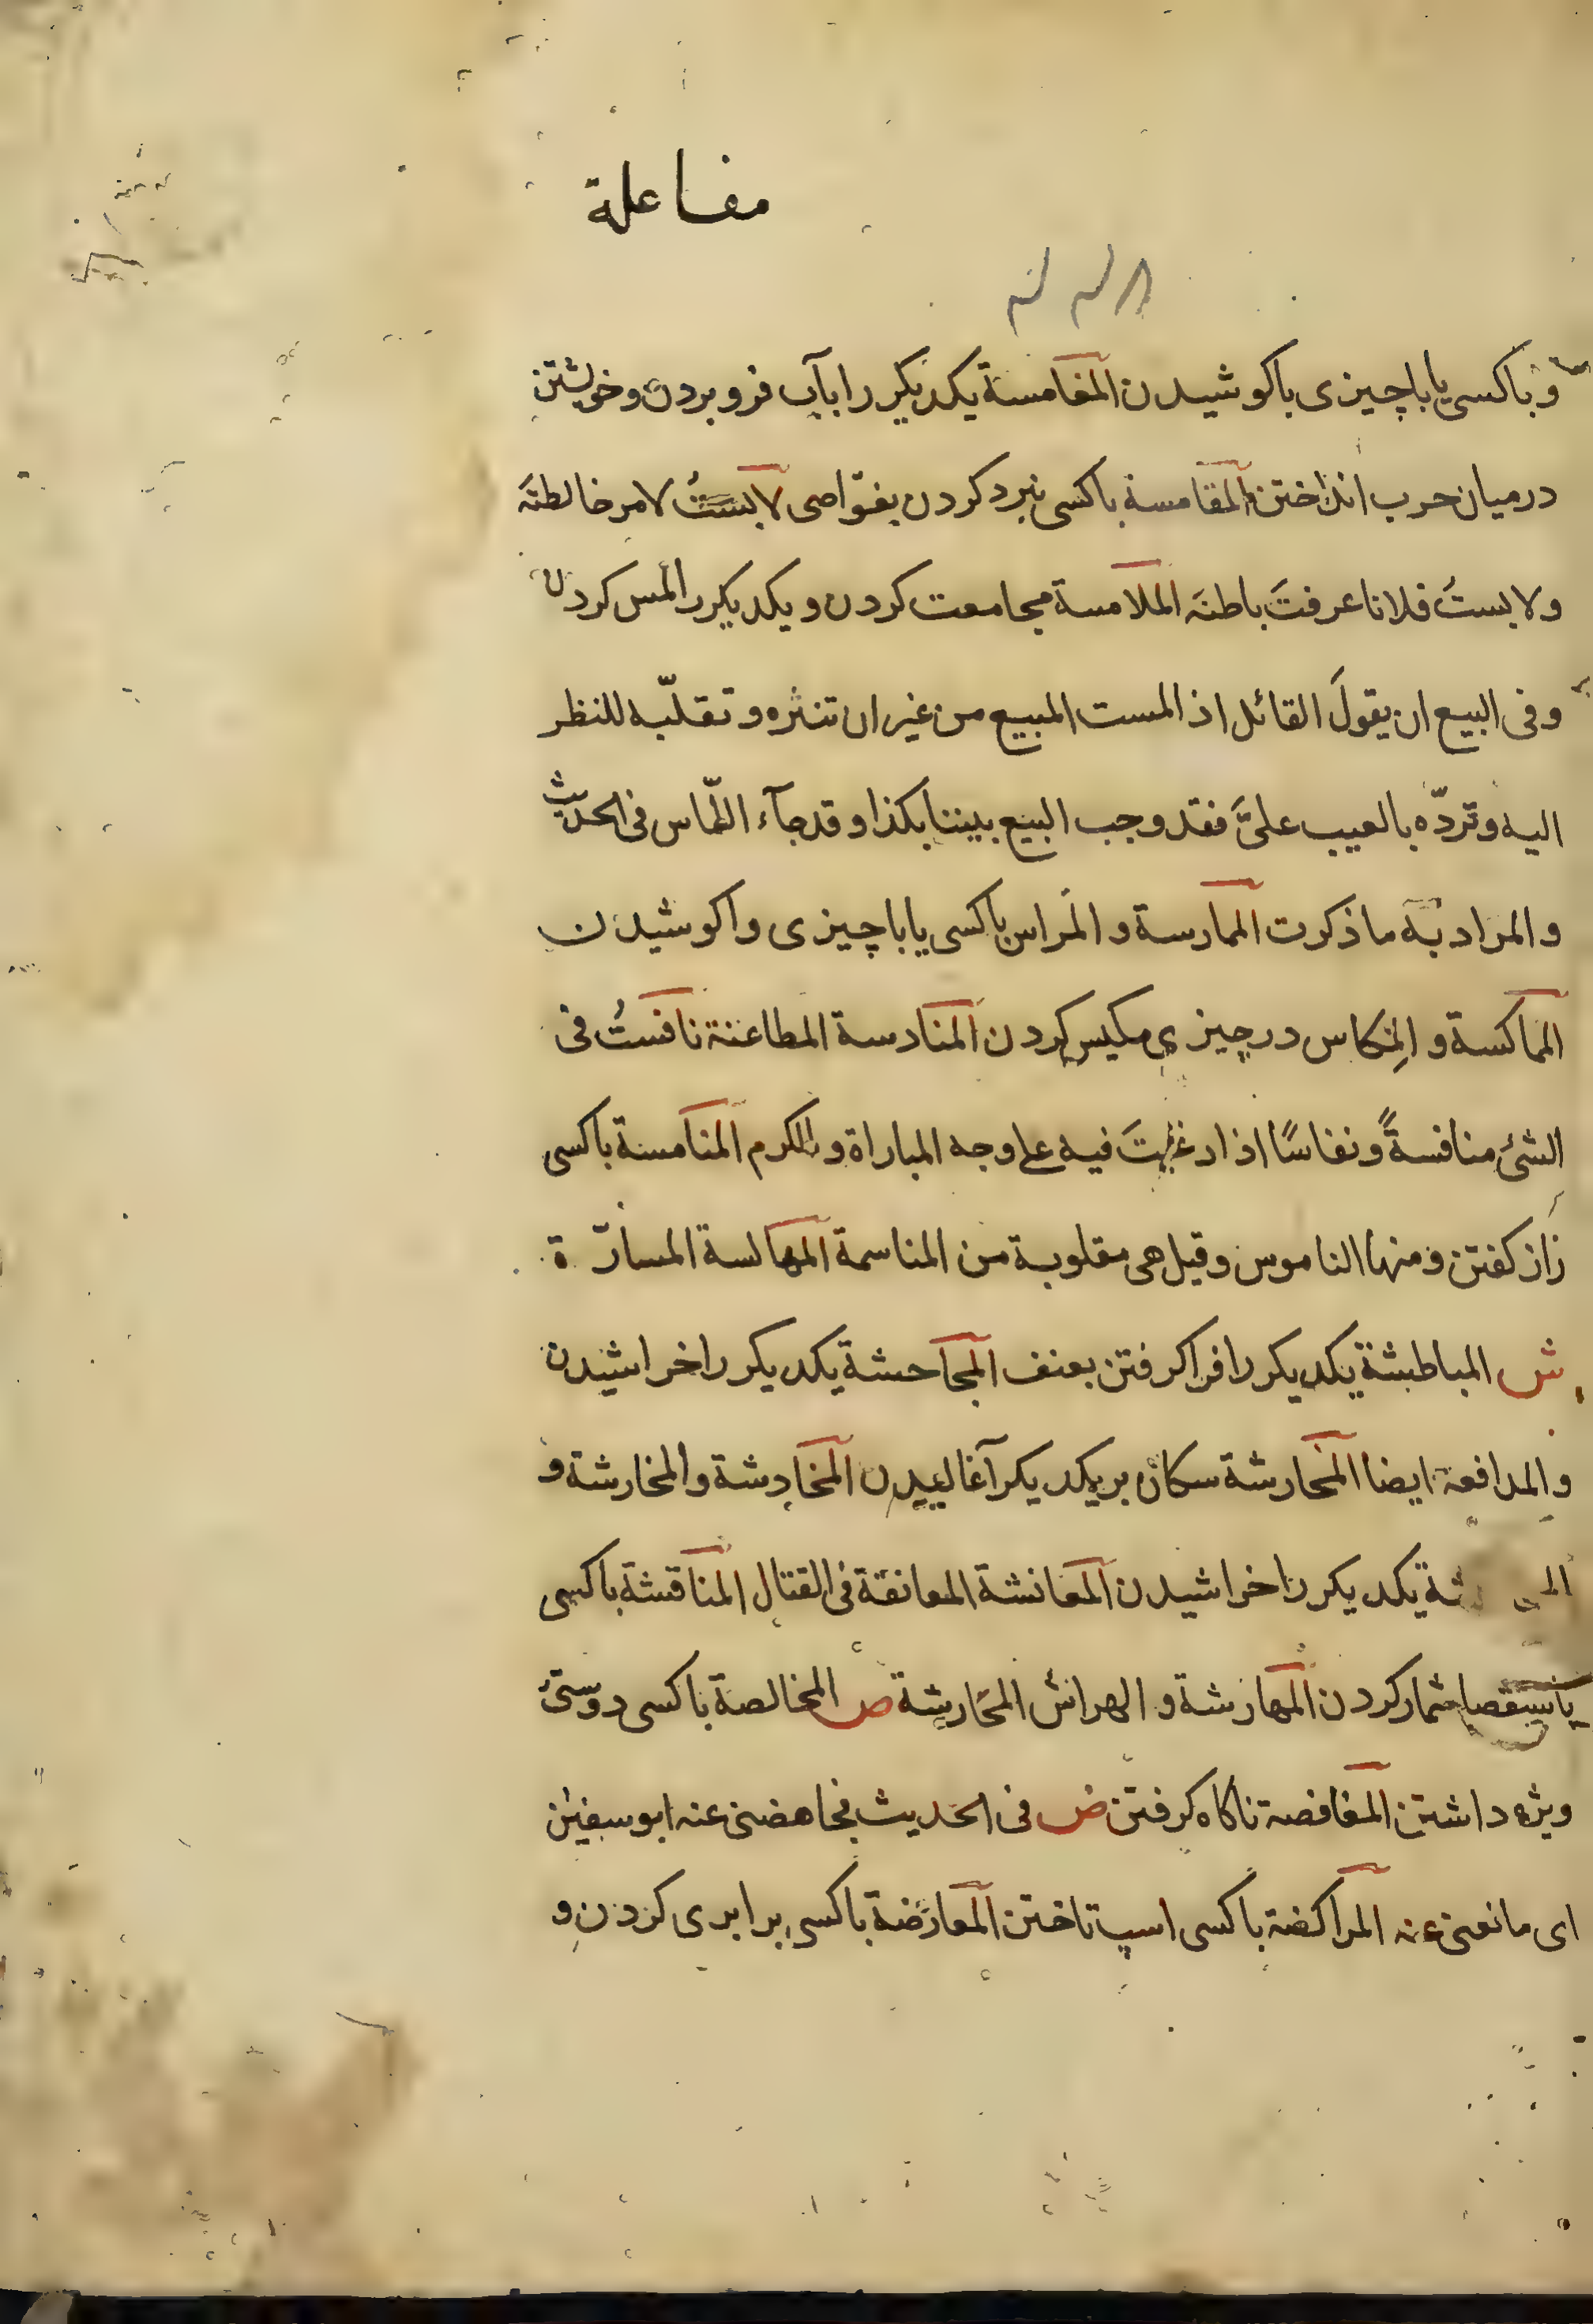 مفاعلة
و باكسى يا باچيزى باكوشيدن المغامسة يكديكر را بآب فرو بردن و خويشتن
درميان حرب انداختن المقامسة باكسى نبرد كردن بغوّاصى لابستُ لامر خالطتَه
ولابستُ فلانا عرفتَ باطنَه الملامسة مجامعت كردن و يكديكر را لمس كردن
وفى البيع ان يقولَ القائل اذا لمست المبيع من غير ان تنشره و تقلّبه للنظر
اليه و تردّه بالعيب علىَّ فقد وجب البيع بيننا بكذا و قد جآء اللّماس فى الحديث
والمراد به ما ذكرت الممارسة و المراس باكسى يا باچيزى واكوشيدن
المماكسة و المِكاس درچيزى مكيس كردن المنادسة المطاعنة نافستُ فى
الشئ منافسةً و نفاسًا اذا رغبتَ فيه على وجه المباراة و الكرم المنامسة باكسى
راز كفتن و منها الناموس و قيل هى مقلوبة من المناسمة المهالسة المسارّة
ش المباطشة يكديكر را فرا كرفتن بعنف المجاحشة يكديكر را خراشيدن
والمدافعة ايضا المحارشة سكان بر يكديكر آغاليدن المخادشة والمخارشة و
يكديكر را خراشيدن المعانشة المعانقة فى القتال المناقشة باكسى
شمار كردن المهارشة و الهراش المحارشة ص المخالصة باكسى دوستى
ويژه داشتن المغافصة ناكاه كرفتن ض فى الحديث فجاهضنى عنه ابو سفين
اى مانعنى عنه المراكضة باكسى اسپ تاختن المعارضة باكسى برابرى كردن و